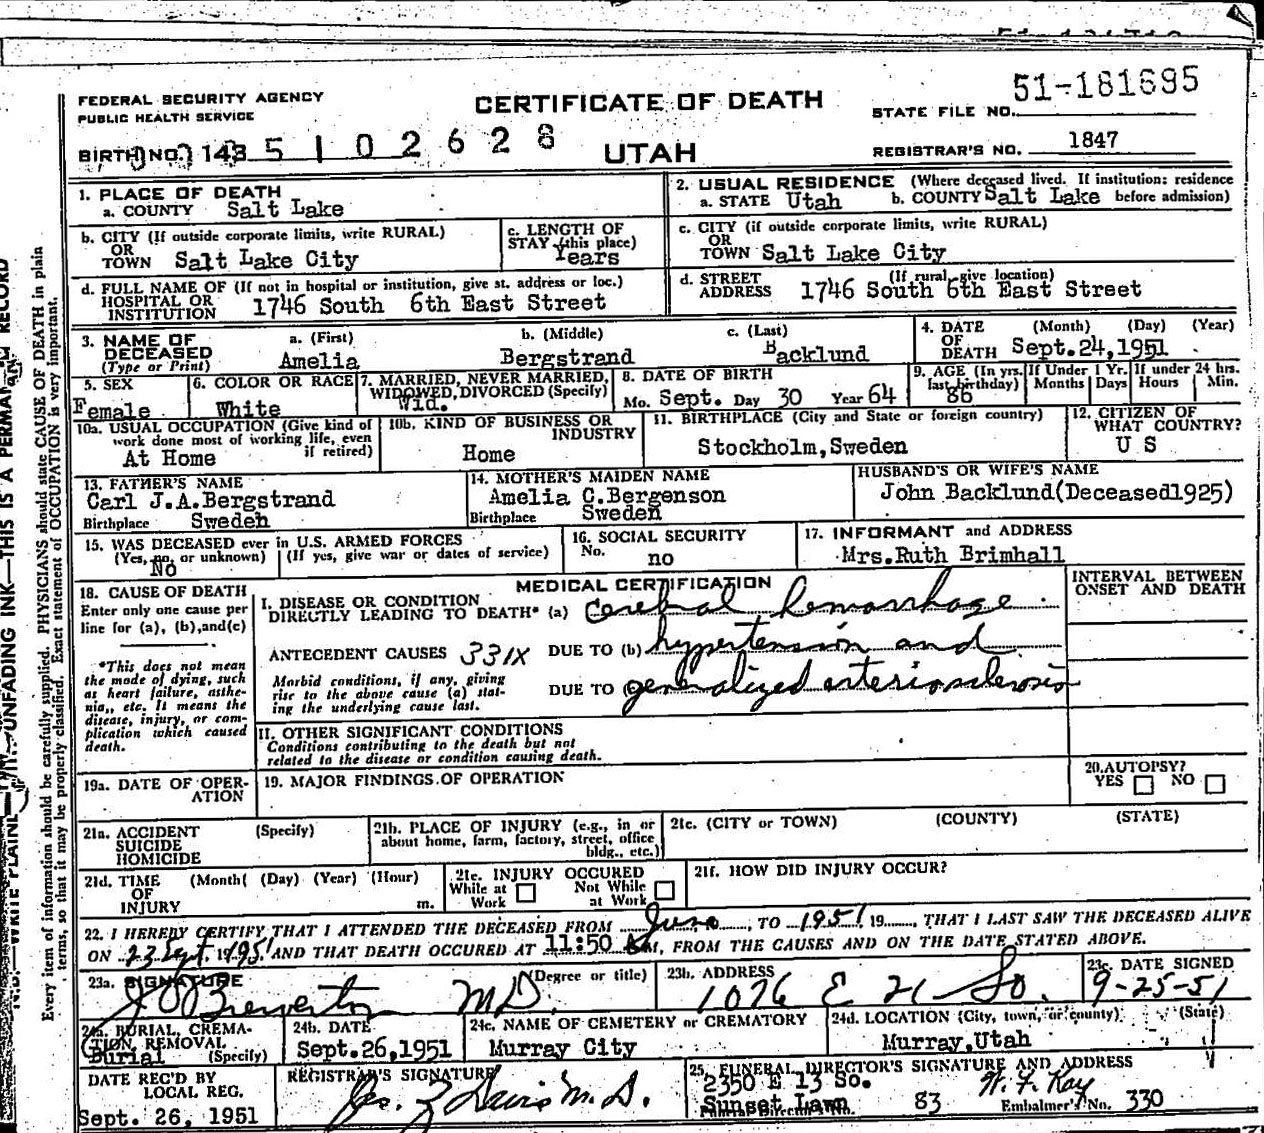 FEDERAL SECURITY AGENCY
PUBLIC HEALTH SERVICE
CERTIFICATE OF DEATH
STATE FILE NO. 51-181695
BIRTH NO. 143 5 1 0 2 6 2 8
UTAH
REGISTRAR'S NO. 1847
1. PLACE OF DEATH
a. COUNTY Salt Lake
2. USUAL RESIDENCE (Where deceased lived. If institution: residence before admission)
a. STATE Utah b. COUNTY Salt Lake
b. CITY (If outside corporate limits, write RURAL)
OR
TOWN Salt Lake City
c. LENGTH OF
STAY (this place)
Years
c. CITY (if outside corporate limits, write RURAL)
OR
TOWN Salt Lake City
d. FULL NAME OF (If not in hospital or institution, give st. address or loc.)
HOSPITAL OR
INSTITUTION 1746 South 6th East Street
d. STREET (If rural, give location)
ADDRESS 1746 South 6th East Street
3. NAME OF
DECEASED
(Type or Print)
a. (First)
Amelia
b. (Middle)
Bergstrand
c. (Last)
Backlund
4. DATE (Month) (Day) (Year)
OF
DEATH Sept.24,1951
5. SEX
Female
6. COLOR OR RACE
White
7. MARRIED, NEVER MARRIED,
WIDOWED, DIVORCED (Specify)
Wid.
8. DATE OF BIRTH
Mo. Sept. Day 30 Year 64
9. AGE (In yrs.
last birthday)
86
If Under 1 Yr.
Months Days
If under 24 hrs.
Hours Min.
10a. USUAL OCCUPATION (Give kind of
work done most of working life, even
if retired)
At Home
10b. KIND OF BUSINESS OR
INDUSTRY
Home
11. BIRTHPLACE (City and State or foreign country)
Stockholm,Sweden
12. CITIZEN OF
WHAT COUNTRY?
U S
13. FATHER'S NAME
Carl J.A.Bergstrand
Birthplace Sweden
14. MOTHER'S MAIDEN NAME
Amelia C.Bergenson
Birthplace Sweden
HUSBAND'S OR WIFE'S NAME
John Backlund(Deceased1925)
15. WAS DECEASED ever in U.S. ARMED FORCES
(Yes, no, or unknown) (If yes, give war or dates of service)
No
16. SOCIAL SECURITY
No. no
17. INFORMANT and ADDRESS
Mrs.Ruth Brimhall
18. CAUSE OF DEATH
Enter only one cause per
line for (a), (b),and(c)
*This does not mean
the mode of dying, such
as heart failure, asthe-
nia,, etc. It means the
disease, injury, or com-
plication which caused
death.
MEDICAL CERTIFICATION
I. DISEASE OR CONDITION
DIRECTLY LEADING TO DEATH* (a) cerebral hemorrhage
ANTECEDENT CAUSES 331X DUE TO (b) hypertension and
Morbid conditions, if any, giving
rise to the above cause (a) stat-
ing the underlying cause last.
DUE TO (c) generalized arteriosclerosis
INTERVAL BETWEEN
ONSET AND DEATH
II. OTHER SIGNIFICANT CONDITIONS
Conditions contributing to the death but not
related to the disease or condition causing death.
19a. DATE OF OPER-
ATION
19. MAJOR FINDINGS OF OPERATION
20. AUTOPSY?
YES NO
21a. ACCIDENT (Specify)
SUICIDE
HOMICIDE
21b. PLACE OF INJURY (e.g., in or
about home, farm, factory, street, office
bldg., etc.)
21c. (CITY or TOWN) (COUNTY) (STATE)
21d. TIME (Month( (Day) (Year) (Hour)
OF
INJURY m.
21e. INJURY OCCURED
While at Work Not While at Work
21f. HOW DID INJURY OCCUR?
22. I HEREBY CERTIFY THAT I ATTENDED THE DECEASED FROM June, TO 1951 19, THAT I LAST SAW THE DECEASED ALIVE
ON 23 Sept. 1951 AND THAT DEATH OCCURED AT 11:50 M, FROM THE CAUSES AND ON THE DATE STATED ABOVE.
23a. SIGNATURE (Degree or title)
Brewerton M D.
23b. ADDRESS
1076 E 21 So.
23c. DATE SIGNED
9-25-51
24a. BURIAL, CREMA-
TION, REMOVAL
Burial (Specify)
24b. DATE
Sept.26,1951
24c. NAME OF CEMETERY or CREMATORY
Murray City
24d. LOCATION (City, town, or county) (State)
Murray,Utah
DATE REC'D BY
LOCAL REG.
Sept. 26, 1951
REGISTRAR'S SIGNATURE
Davis M. D.
25. FUNERAL DIRECTOR'S SIGNATURE AND ADDRESS
2350 E 13 So.
Sunset Lawn 83
Embalmer's No. 330
Every item of information should be carefully supplied. PHYSICIANS should state CAUSE OF DEATH in plain
terms, so that it may be properly classified. Exact statement of OCCUPATION is very important.
UNFADING INK—THIS IS A PERMANENT RECORD